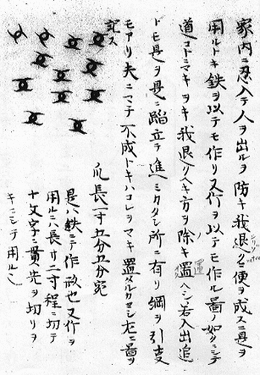 家内ニ忍入テ人ヲ出ルヲ防キ我退クニ便ヲ成ス具是ヲ
用ルトキ鉄ヲ以テモ作リ又竹ヲ以テモ作ル量ノ如クシテ
道コトニマキヲキ我退クヘキ方ヲ除キ置ヘシ若人出追
トモ是ヲ具ニ踏立テ進ミカタシ所ニ有リ綱ヲ引支
モアリ夫ニマテ不成トキハコレヲマキ置ヘルカヨシ左ニ量ヲ
記ス
爪長一寸五分五分宛
是ハ鉄ニテ作ル故也又竹ヲ
用ルニハ長サ二寸程ニ切テ
十文字ニ貫先ヲ切リヲ
キニシテ用ル